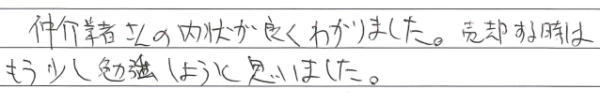 仲介業者さんの内状が良くわかりました。売却する時は
もう少し勉強しようと思いました。